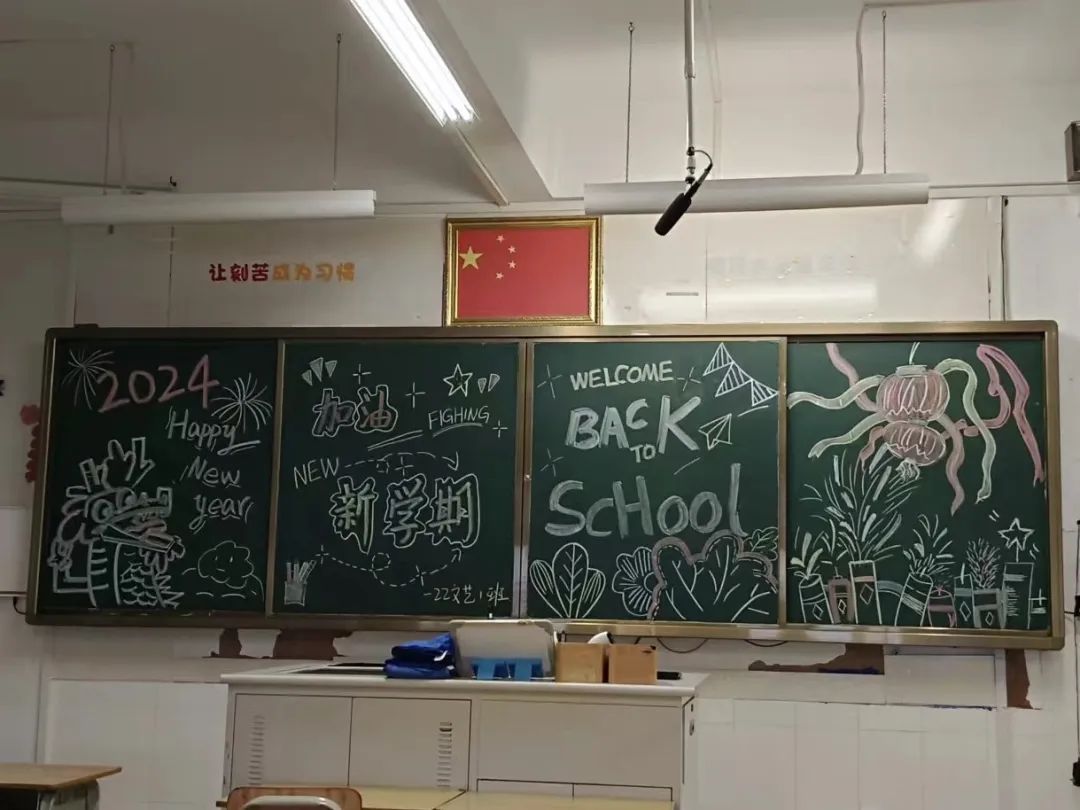 让刻苦成为习惯
2024
Happy
New
year
加油
FIGHING
NEW
新学期
-22文艺1班
WELCOME
BACK
TO
ScHool